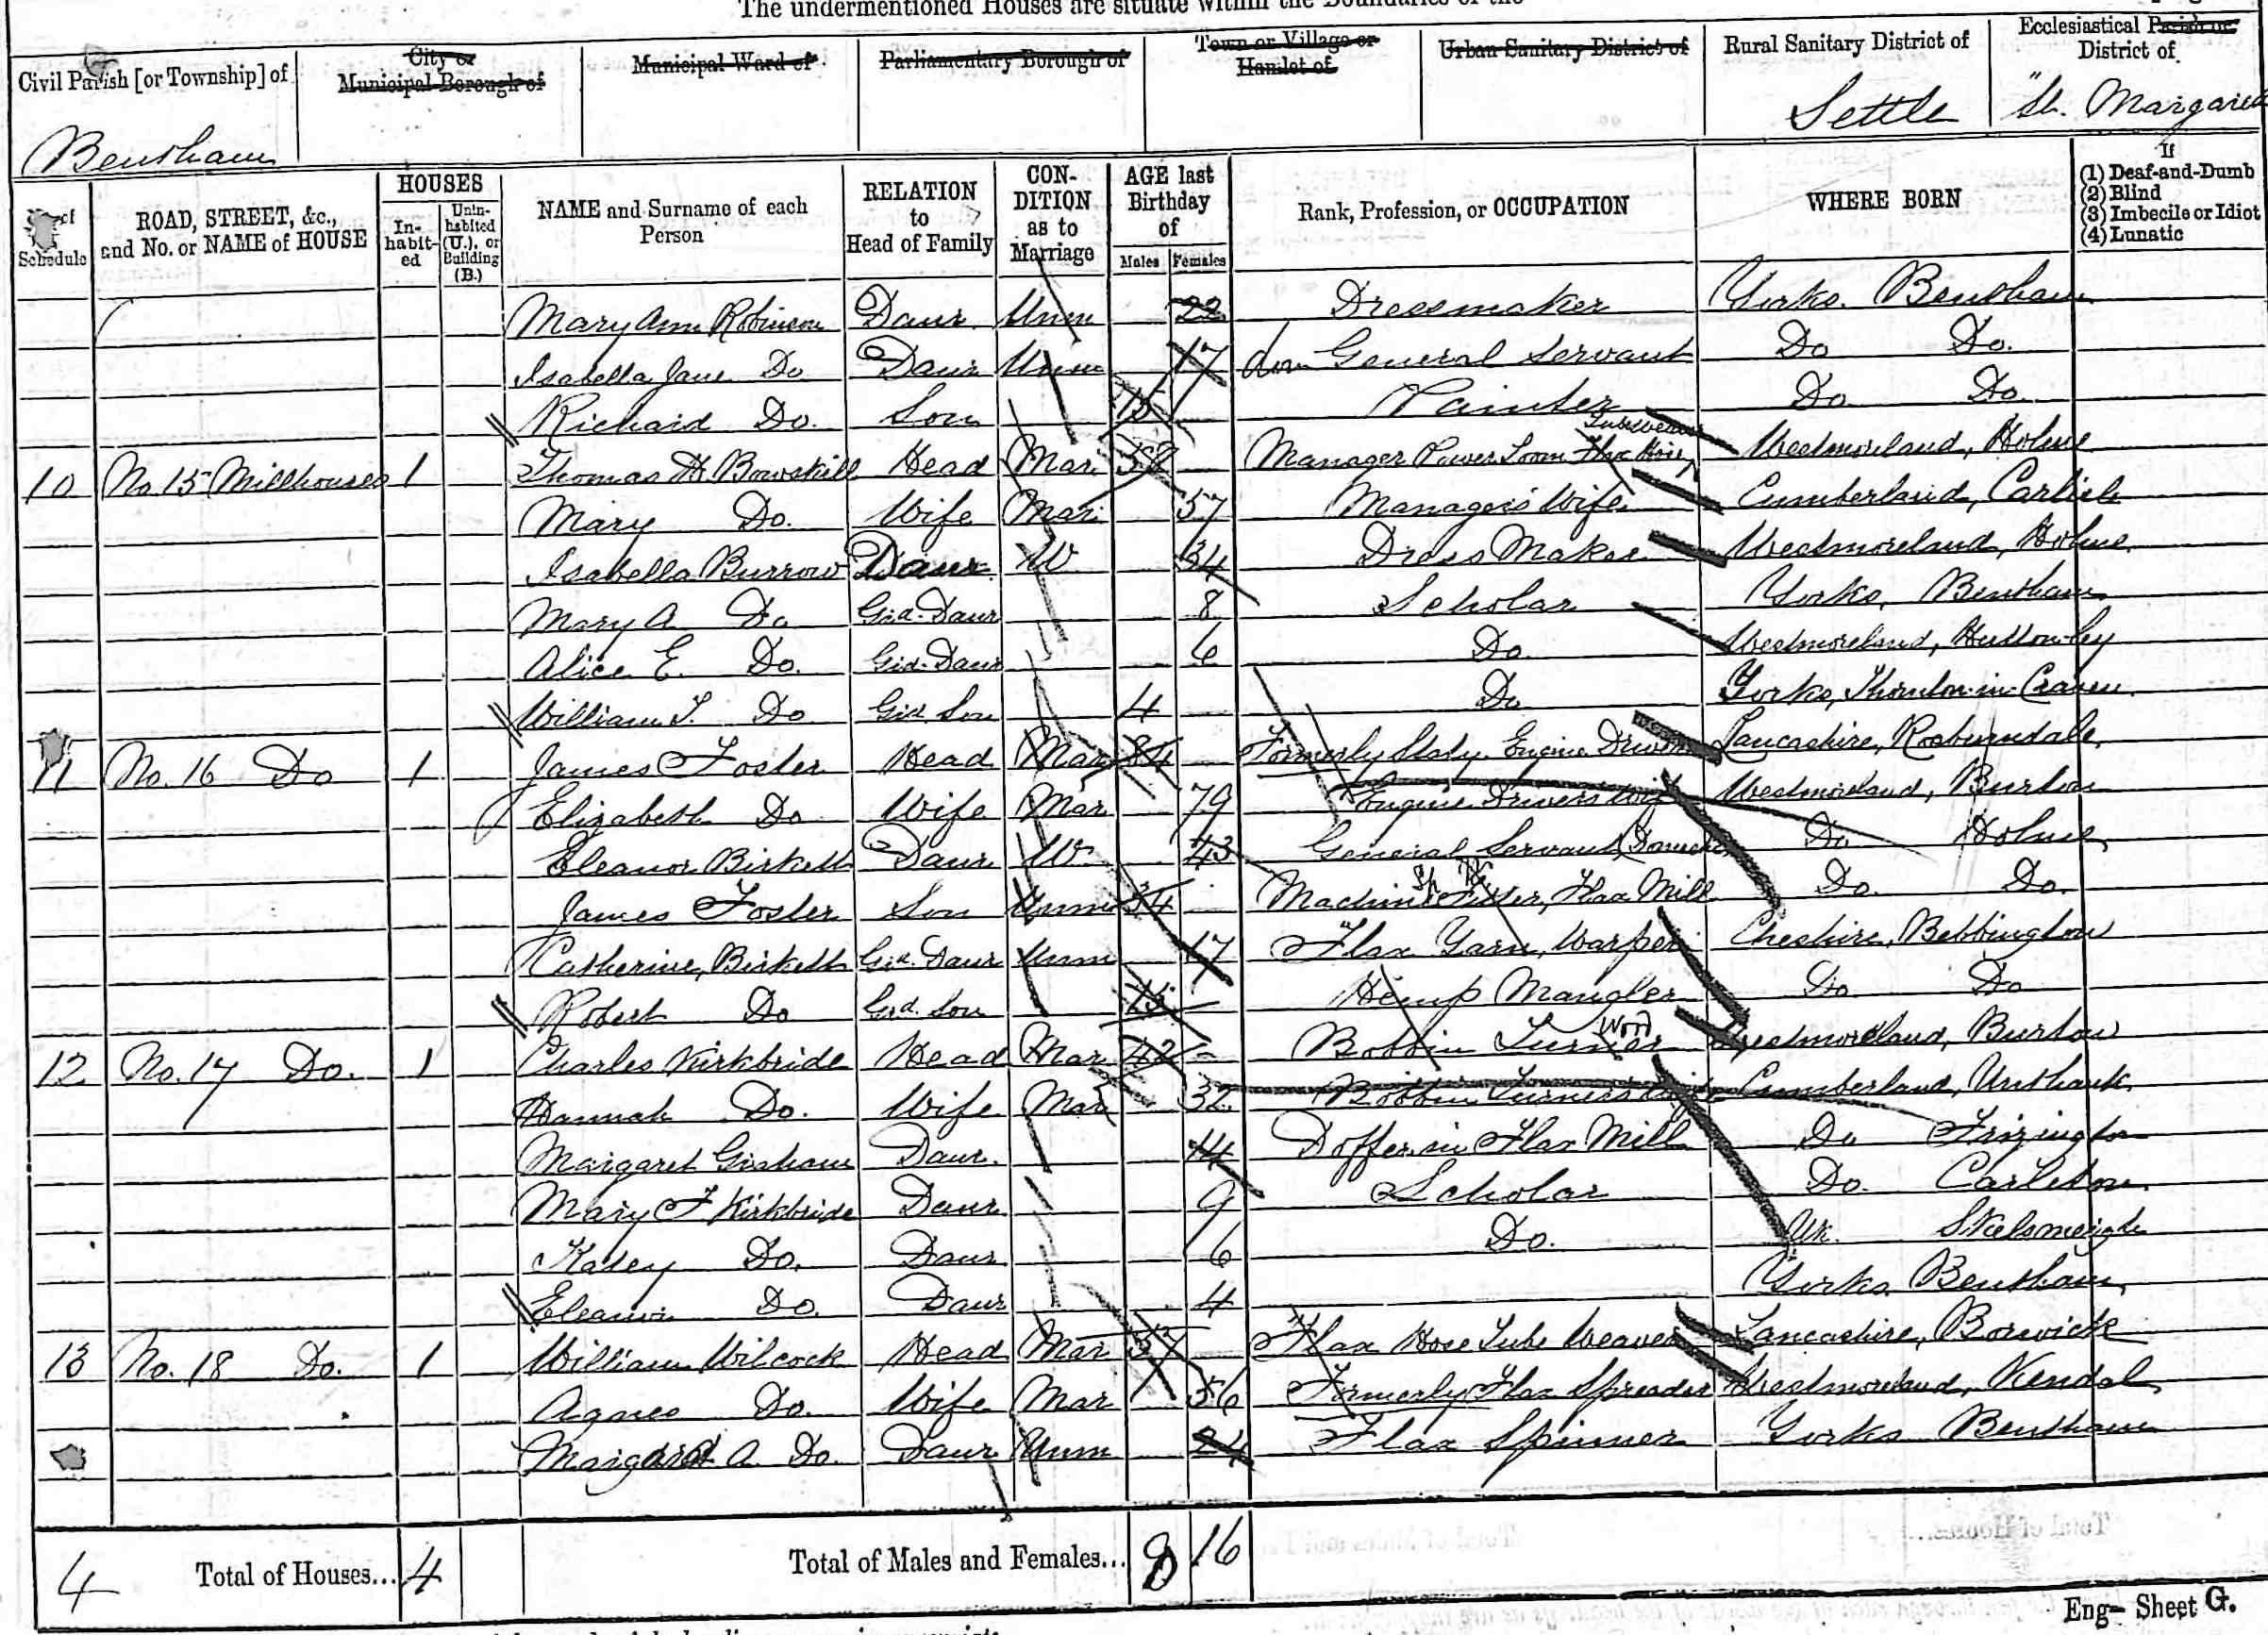 The undermentioned Houses are situate within the Boundaries of the
Civil Parish [or Township] of
City or Municipal Borough of
Municipal Ward of
Parliamentary Borough of
Town or Village or Hamlet of
Urban Sanitary District of
Rural Sanitary District of
Ecclesiastical Parish or District of
Bentham
Settle
St. Margaret
Schedule
ROAD, STREET, &c., and No. or NAME of HOUSE
HOUSES
In-habit-ed
Unin-habited (U.), or Building (B.)
NAME and Surname of each Person
RELATION to Head of Family
CON-DITION as to Marriage
AGE last Birthday of
Males Females
Rank, Profession, or OCCUPATION
WHERE BORN
If
(1) Deaf-and-Dumb
(2) Blind
(3) Imbecile or Idiot
(4) Lunatic
Mary Ann Robinson Daur. Unm 22 Dressmaker Yorks. Bentham
Isabella Jane Do Daur Unm 17 General Servant Do Do.
Richard Do. Son 15 Painter Do Do
10 No. 15 Millhouses 1 Thomas H. Bowskill Head Mar. Manager Power Loom Flax Westmoreland, Holme
Mary Do. Wife Mar. 57 Manager's Wife Cumberland, Carlisle
Isabella Burrow Daur. W 34 Dress Maker Westmoreland, Holme
Mary A Do Grd. Daur 8 Scholar Yorks, Bentham
Alice E. Do. Grd. Daur 6 Do. Westmoreland,
William T. Do Grd. Son 4 Do Yorks, Thornton-in-Craven
11 No. 16 Do 1 James Foster Head Mar 84 Formerly Staty. Engine Driver Lancashire,
Elizabeth Do Wife Mar 79 Engine Drivers Wife Westmoreland, Burton
Eleanor Birkett Daur W. 43 General Servant Do Holme
James Foster Son Unm 34 Machine Fitter, Flax Mill Do. Do.
Catherine Birkett Grd. Daur Unm 17 Flax Yarn Warper Cheshire, Bebbington
Robert Do Grd. Son 15 Hemp Mangler Do. Do
12 No. 17 Do. 1 Charles Kirkbride Head Mar 42 Bobbin Turner Wood Westmoreland, Burton
Hannah Do. Wife Mar 32 Bobbin Turners Wife Cumberland, Unthank
Margaret Graham Daur. 14 Doffer in Flax Mill Do Frizington
Mary F Kirkbride Daur 9 Scholar Do. Carleton
Katey Do. Daur 6 Do. Skelsmergh
Eleanor Do. Daur 4 Yorks Bentham
13 No. 18 Do. 1 William Wilcock Head Mar 57 Flax Hose Tube Weaver Lancashire, Borwick
Agnes Do. Wife Mar 56 Formerly Flax Spreader Westmoreland, Kendal
Margaret A. Do. Daur Unm 24 Flax Spinner Yorks Bentham
4 Total of Houses... 4 Total of Males and Females... 8 16
Eng— Sheet G.